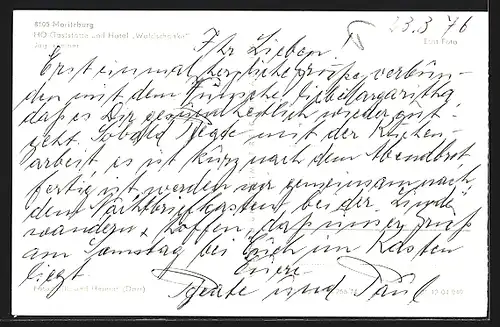 8105 Moritzburg
HO-Gaststätte und Hotel „Waldschänke"
Jagdzimmer
23.3.76
Echt Foto
Ihr Lieben
Erst einmal herzliche Grüße verbun-
den mit dem Wunsche, liebe Margarithe
dass es Dir gesundheitlich wieder gut
geht. Sobald Beate mit der Küchen-
arbeit, es ist kurz nach dem Abendbrot
fertig ist, werden wir gemeinsam nach
dem Nachtbriefkasten bei der Linde
wandern + hoffen, daß unser Gruß
am Samstag bei Euch im Kasten
liegt. Eure
Beate und Paul
und Heimat
12 01 840